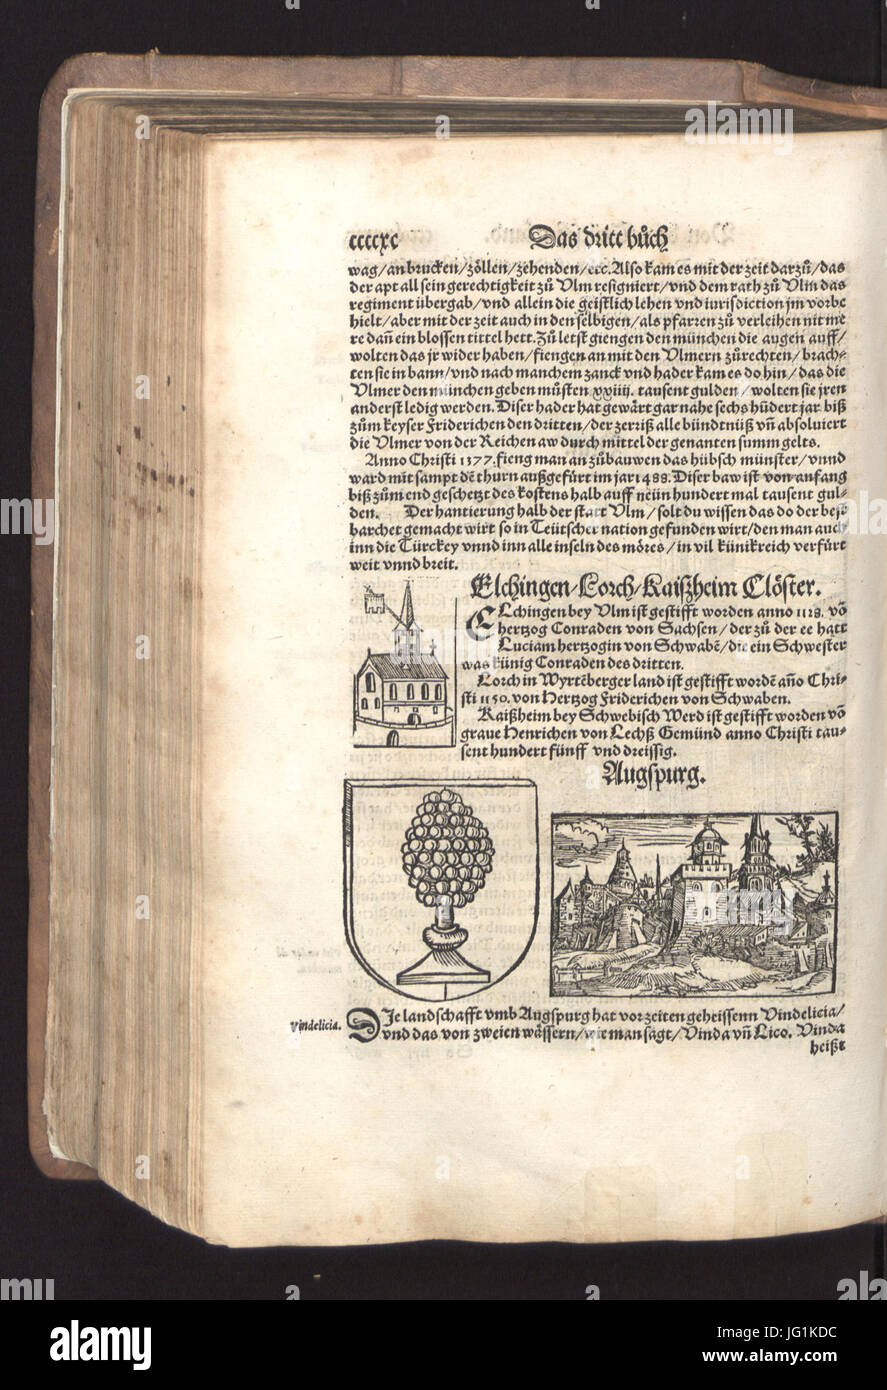 ccccxc Das dritt bůch
wag/an brucken/zöllen/zehenden/etc. Also kam es mit der zeit darzů/das
der apt all sein gerechtigkeit zů Vlm resigniert/vnd dem rath zů Vlm das
regiment übergab/vnd allein die geistlich lehen vnd iurisdiction jm vorbe
hielt/aber mit der zeit auch in den selbigen/als pfarren zů verleihen nit me
re dañ ein blossen tittel hett. Zů letst giengen den münchen die augen auff/
wolten das jr wider haben/fiengen an mit den Vlmern zůrechten/brach-
ten sie in bann/vnd nach manchem zanck vnd hader kam es do hin/das die
Vlmer den münchen geben můsten xxiiij. tausent gulden/wolten sie jren
anderst ledig werden. Diser hader hat gewärt gar nahe sechs hūdert jar biß
zům keyser Friderichen den dritten/der zerriß alle bündtnüß vñ absoluiert
die Vlmer von der Reichen aw durch mittel der genanten summ gelts.
Anno Christi 1377. fieng man an zůbauwen das hübsch münster/vnnd
ward mit sampt dē thurn außgefürt im jar 1488. Diser baw ist von anfang
biß zům end geschetzt des kostens halb auff neün hundert mal tausent gul-
den. Der hantierung halb der statt Vlm/solt du wissen das do der best
barchet gemacht wirt so in Teütscher nation gefunden wirt/den man auch
inn die Türckey vnnd inn alle inseln des möres/in vil künikreich verfürt
weit vnnd breit.
Elchingen/Lorch/Kaißheim Clöster.
ELchingen bey Vlm ist gestifft worden anno 1128. vō
hertzog Conraden von Sachsen/der zů der ee hatt
Luciam hertzogin von Schwabē/die ein Schwester
was künig Conraden des dritten.
Lorch in Wyrtēberger land ist gestifft wordē año Chri-
sti 1150. von Hertzog Friderichen von Schwaben.
Kaißheim bey Schwebisch Werd ist gestifft worden vō
graue Henrichen von Lechß Gemünd anno Christi tau-
sent hundert fünff vnd dreissig.
Augspurg.
Vindelicia.
DJe landschafft vmb Augspurg hat vor zeiten geheissenn Vindelicia/
vnd das von zweien wässern/wie man sagt/Vinda vñ Lico. Vinda
heißt
alamy
JG1KDC
www.alamy.com